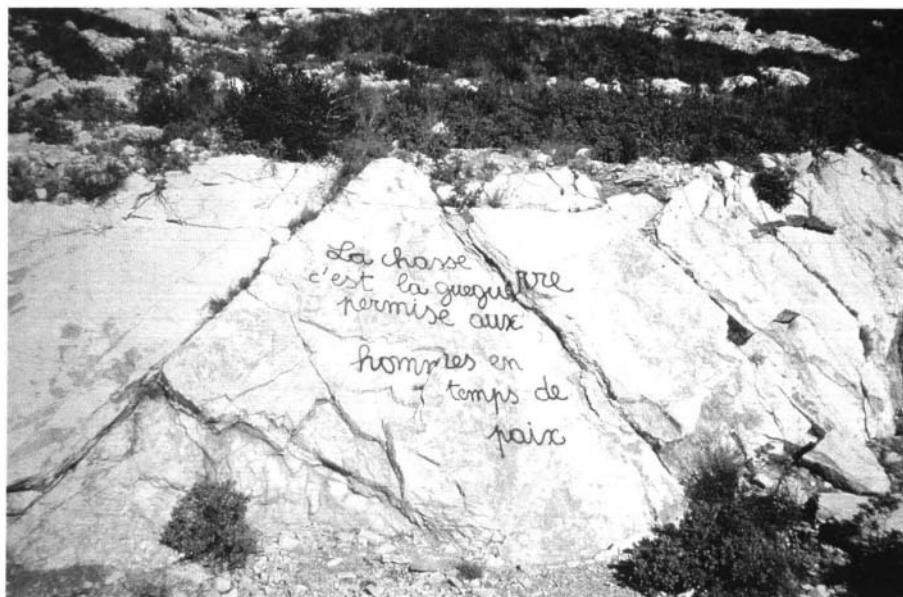 La chasse
c'est la gueguerre
permise aux
hommes en
temps de
paix